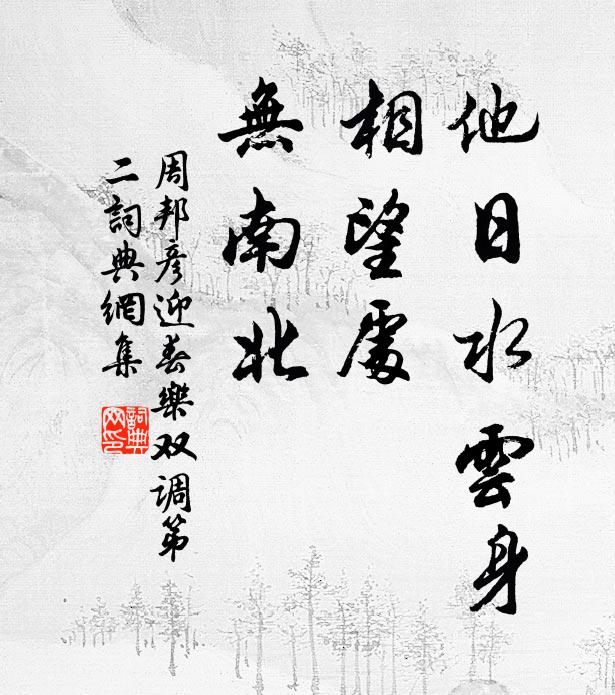 他日水雲身
相望處
無南北
周邦彦迎春樂双调第
二詞典網集
詞典
网印